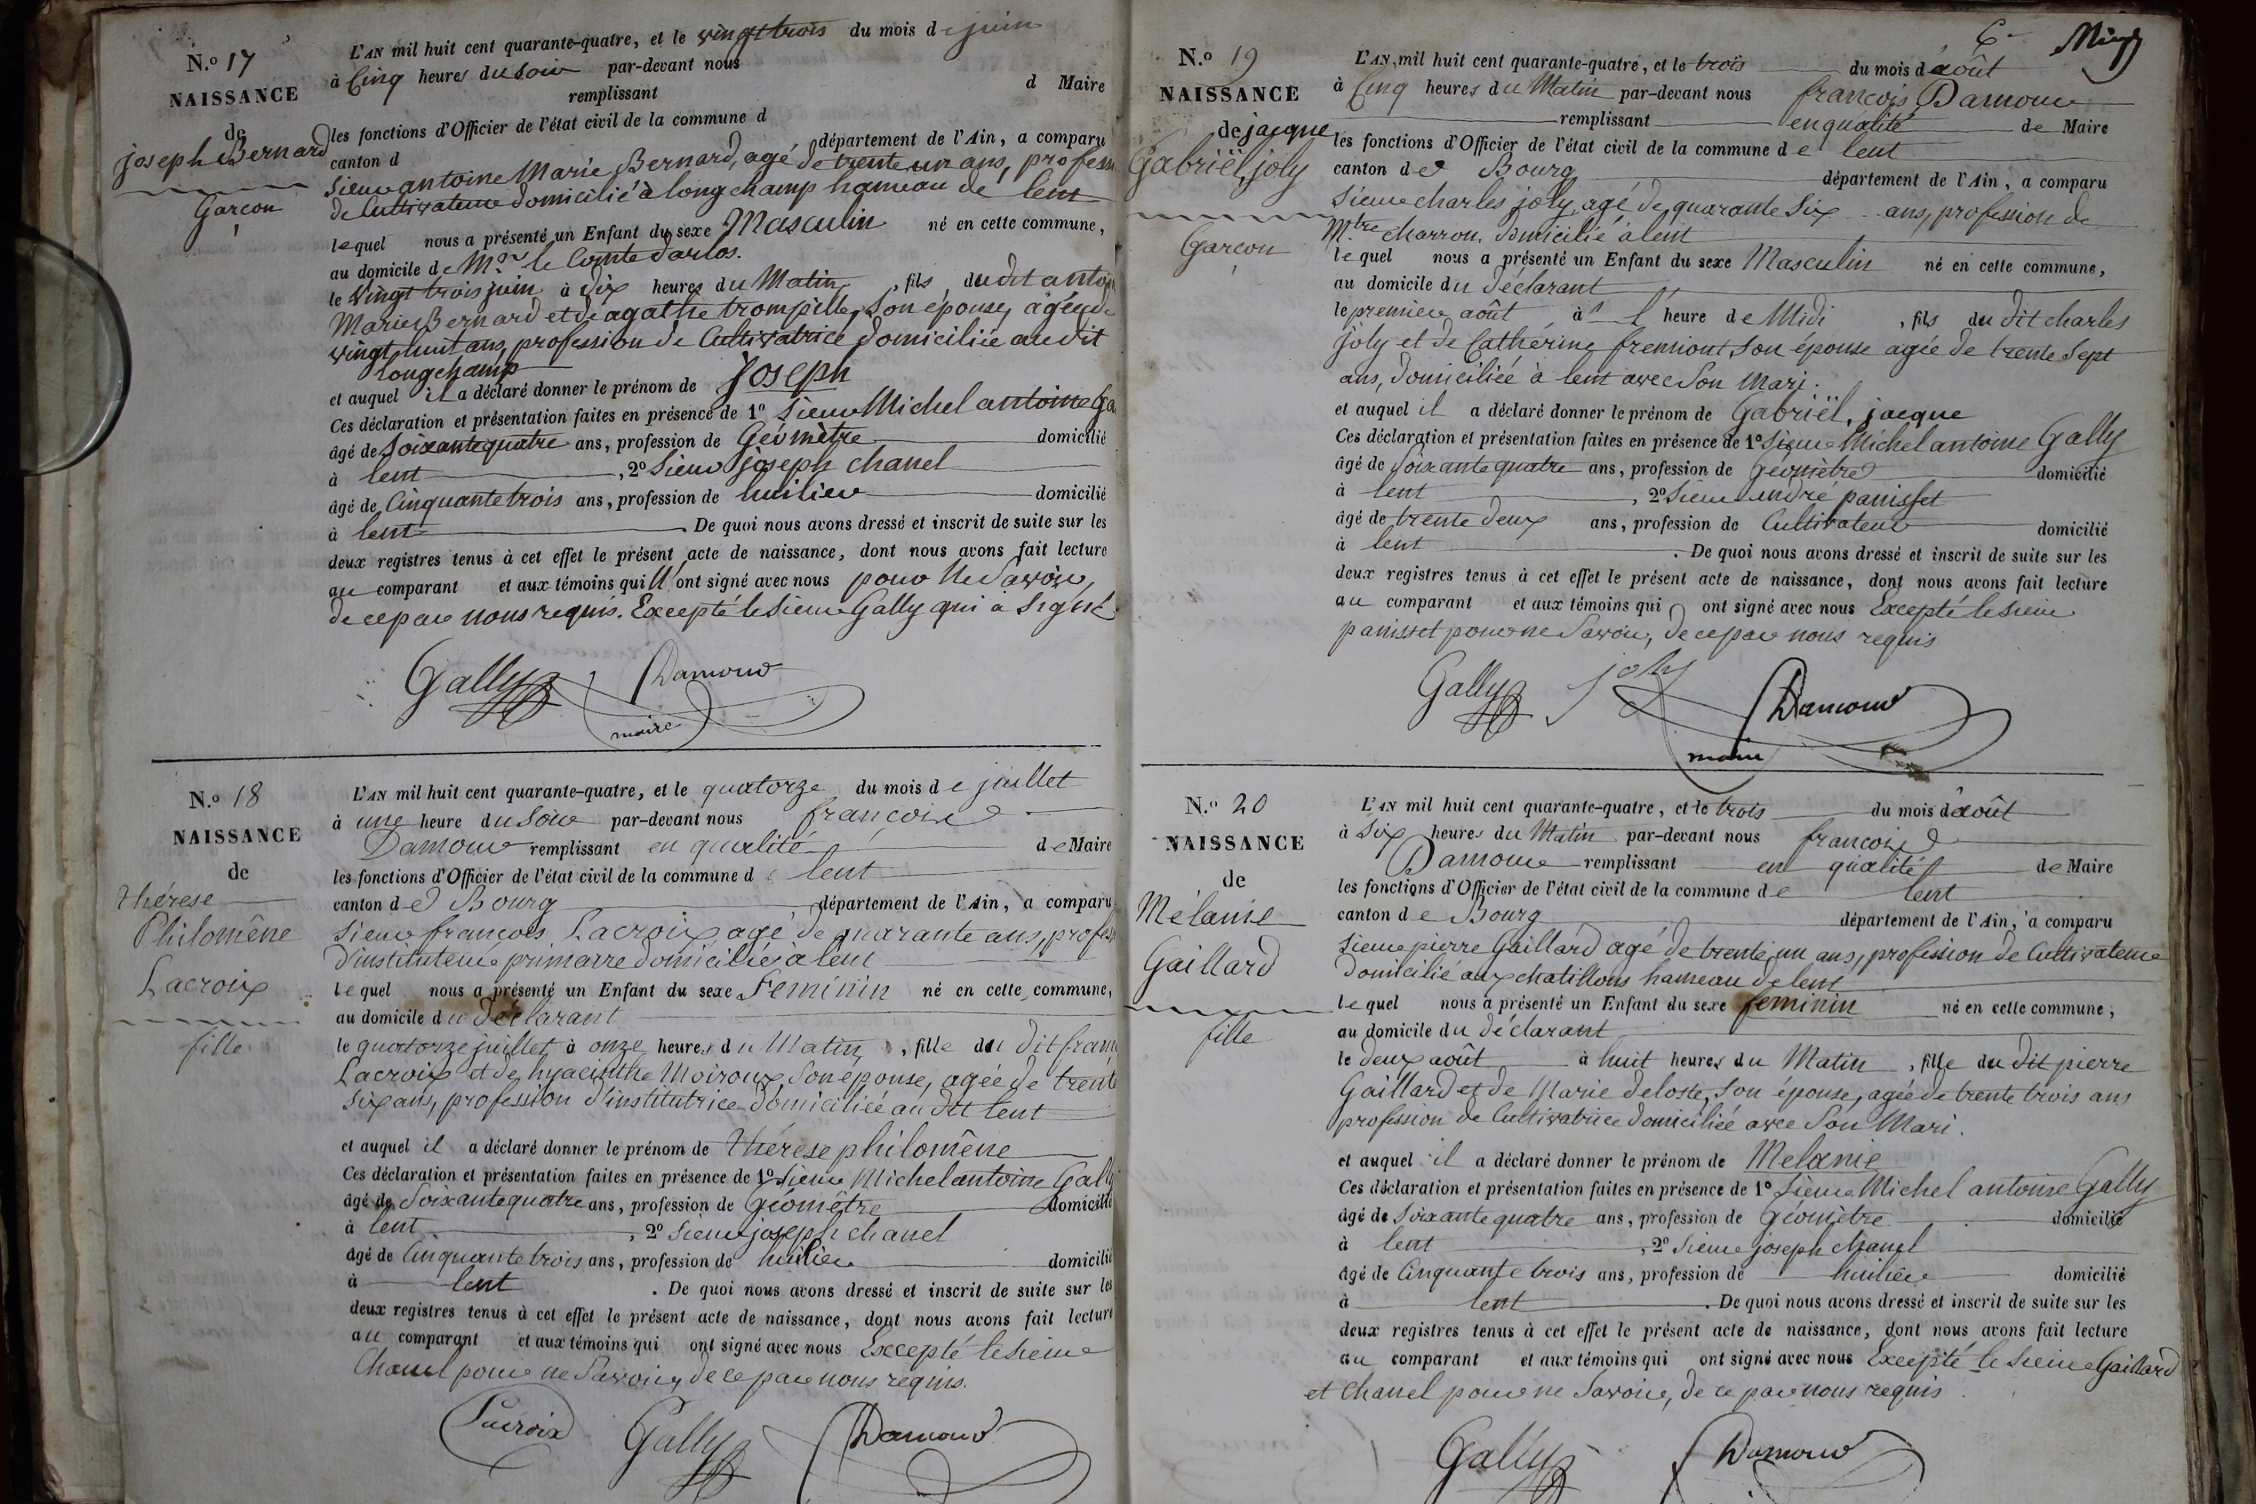 N.o 17
NAISSANCE
de
joseph Bernard
Garçon
L'AN mil huit cent quarante-quatre, et le vingt trois du mois de juin
à Cinq heures du soir par-devant nous
remplissant d Maire
les fonctions d'Officier de l'état civil de la commune d
canton d département de l'Ain, a comparu
Sieur antoine Marie Bernard, agé de trente un ans, profess
de Cultivateur domicilié à longchamp hameau de lent
lequel nous a présenté un Enfant du sexe Masculin né en cette commune,
au domicile de Mr. le Comte darlos.
le vingt trois juin à dix heures du Matin, fils du dit antoi
Marie Bernard et de agathe trompille, Son épouse, agée de
vingt huit ans, profession de Cultivatrice domiciliée au dit
longchamp
et auquel il a déclaré donner le prénom de Joseph
Ces déclaration et présentation faites en présence de 1o Sieur Michel antoine Ga
âgé de Soixante quatre ans, profession de Géomètre domicilié
à lent, 2o Sieur joseph chanel
âgé de Cinquante trois ans, profession de huilier domicilié
à lent. De quoi nous avons dressé et inscrit de suite sur les
deux registres tenus à cet effet le présent acte de naissance, dont nous avons fait lecture
au comparant et aux témoins qui n'ont signé avec nous pour ne Savoir,
de ce par nous requis. Excepté le Sieur Gally qui a Signé
Gally Damour
maire
N.o 18
NAISSANCE
de
thérese
Philomêne
Lacroix
fille
L'AN mil huit cent quarante-quatre, et le quatorze du mois de juillet
à une heure du Soir par-devant nous françois
Damour remplissant en qualité de Maire
les fonctions d'Officier de l'état civil de la commune de lent
canton de Bourg département de l'Ain, a comparu
Sieur françois Lacroix agé de quarante ans, profess
d'instituteur primaire domicilié à lent
lequel nous a présenté un Enfant du sexe Feminin né en cette commune,
au domicile du déclarant
le quatorze juillet à onze heures du Matin, fille du dit franç
Lacroix et de hyacinthe Moiroux, Son épouse, agée de trente
Six ans, profession d'institutrice domiciliée au dit lent
et auquel il a déclaré donner le prénom de thérese philomêne
Ces déclaration et présentation faites en présence de 1o Sieur Michel antoine Gally
âgé de Soixante quatre ans, profession de Géomètre domicilié
à lent, 2o Sieur joseph chanel
âgé de Cinquante trois ans, profession de huilier domicilié
à lent. De quoi nous avons dressé et inscrit de suite sur les
deux registres tenus à cet effet le présent acte de naissance, dont nous avons fait lecture
au comparant et aux témoins qui ont signé avec nous Excepté le Sieur
Chanel pour ne Savoir, de ce par nous requis.
Lacroix Gally Damour
6
N.o 19
NAISSANCE
de jacque
Gabriël, joly
Garçon
L'AN mil huit cent quarante-quatre, et le trois du mois d'août
à Cinq heures du Matin par-devant nous françois Damour
remplissant en qualité de Maire
les fonctions d'Officier de l'état civil de la commune de lent
canton de Bourg département de l'Ain, a comparu
Sieur charles joly, agé de quarante Six ans, profession de
Mtre charron, domicilié à lent
lequel nous a présenté un Enfant du sexe Masculin né en cette commune,
au domicile du déclarant
le premier août à l'heure de Midi, fils du dit charles
joly et de Cathérine fremiont, Son épouse agée de trente Sept
ans, domiciliée à lent avec Son Mari.
et auquel il a déclaré donner le prénom de Gabriël, jacque
Ces déclaration et présentation faites en présence de 1o Sieur Michel antoine Gally
âgé de Soixante quatre ans, profession de Géomètre domicilié
à lent, 2o Sieur andré panisset
âgé de trente deux ans, profession de Cultivateur domicilié
à lent. De quoi nous avons dressé et inscrit de suite sur les
deux registres tenus à cet effet le présent acte de naissance, dont nous avons fait lecture
au comparant et aux témoins qui ont signé avec nous Excepté le Sieur
panisset pour ne Savoir, de ce par nous requis
Gally joly Damour
maire
N.o 20
NAISSANCE
de
Mélanie
Gaillard
fille
L'AN mil huit cent quarante-quatre, et le trois du mois d'août
à Six heures du Matin par-devant nous françois
Damour remplissant en qualité de Maire
les fonctions d'Officier de l'état civil de la commune de lent
canton de Bourg département de l'Ain, a comparu
Sieur pierre Gaillard agé de trente un ans, profession de Cultivateur
domicilié aux chatillons hameau de lent
lequel nous a présenté un Enfant du sexe feminin né en cette commune,
au domicile du déclarant
le deux août à huit heures du Matin, fille du dit pierre
Gaillard et de Marie deloste, Son épouse, agée de trente trois ans
profession de Cultivatrice domiciliée avec Son Mari.
et auquel il a déclaré donner le prénom de Melanie
Ces déclaration et présentation faites en présence de 1o Sieur Michel antoine Gally
âgé de Soixante quatre ans, profession de Géomètre domicilié
à lent, 2o Sieur joseph chanel
âgé de Cinquante trois ans, profession de huilier domicilié
à lent. De quoi nous avons dressé et inscrit de suite sur les
deux registres tenus à cet effet le présent acte de naissance, dont nous avons fait lecture
au comparant et aux témoins qui ont signé avec nous Excepté le Sieur Gaillard
et chanel pour ne Savoir, de ce par nous requis.
Gally Damour